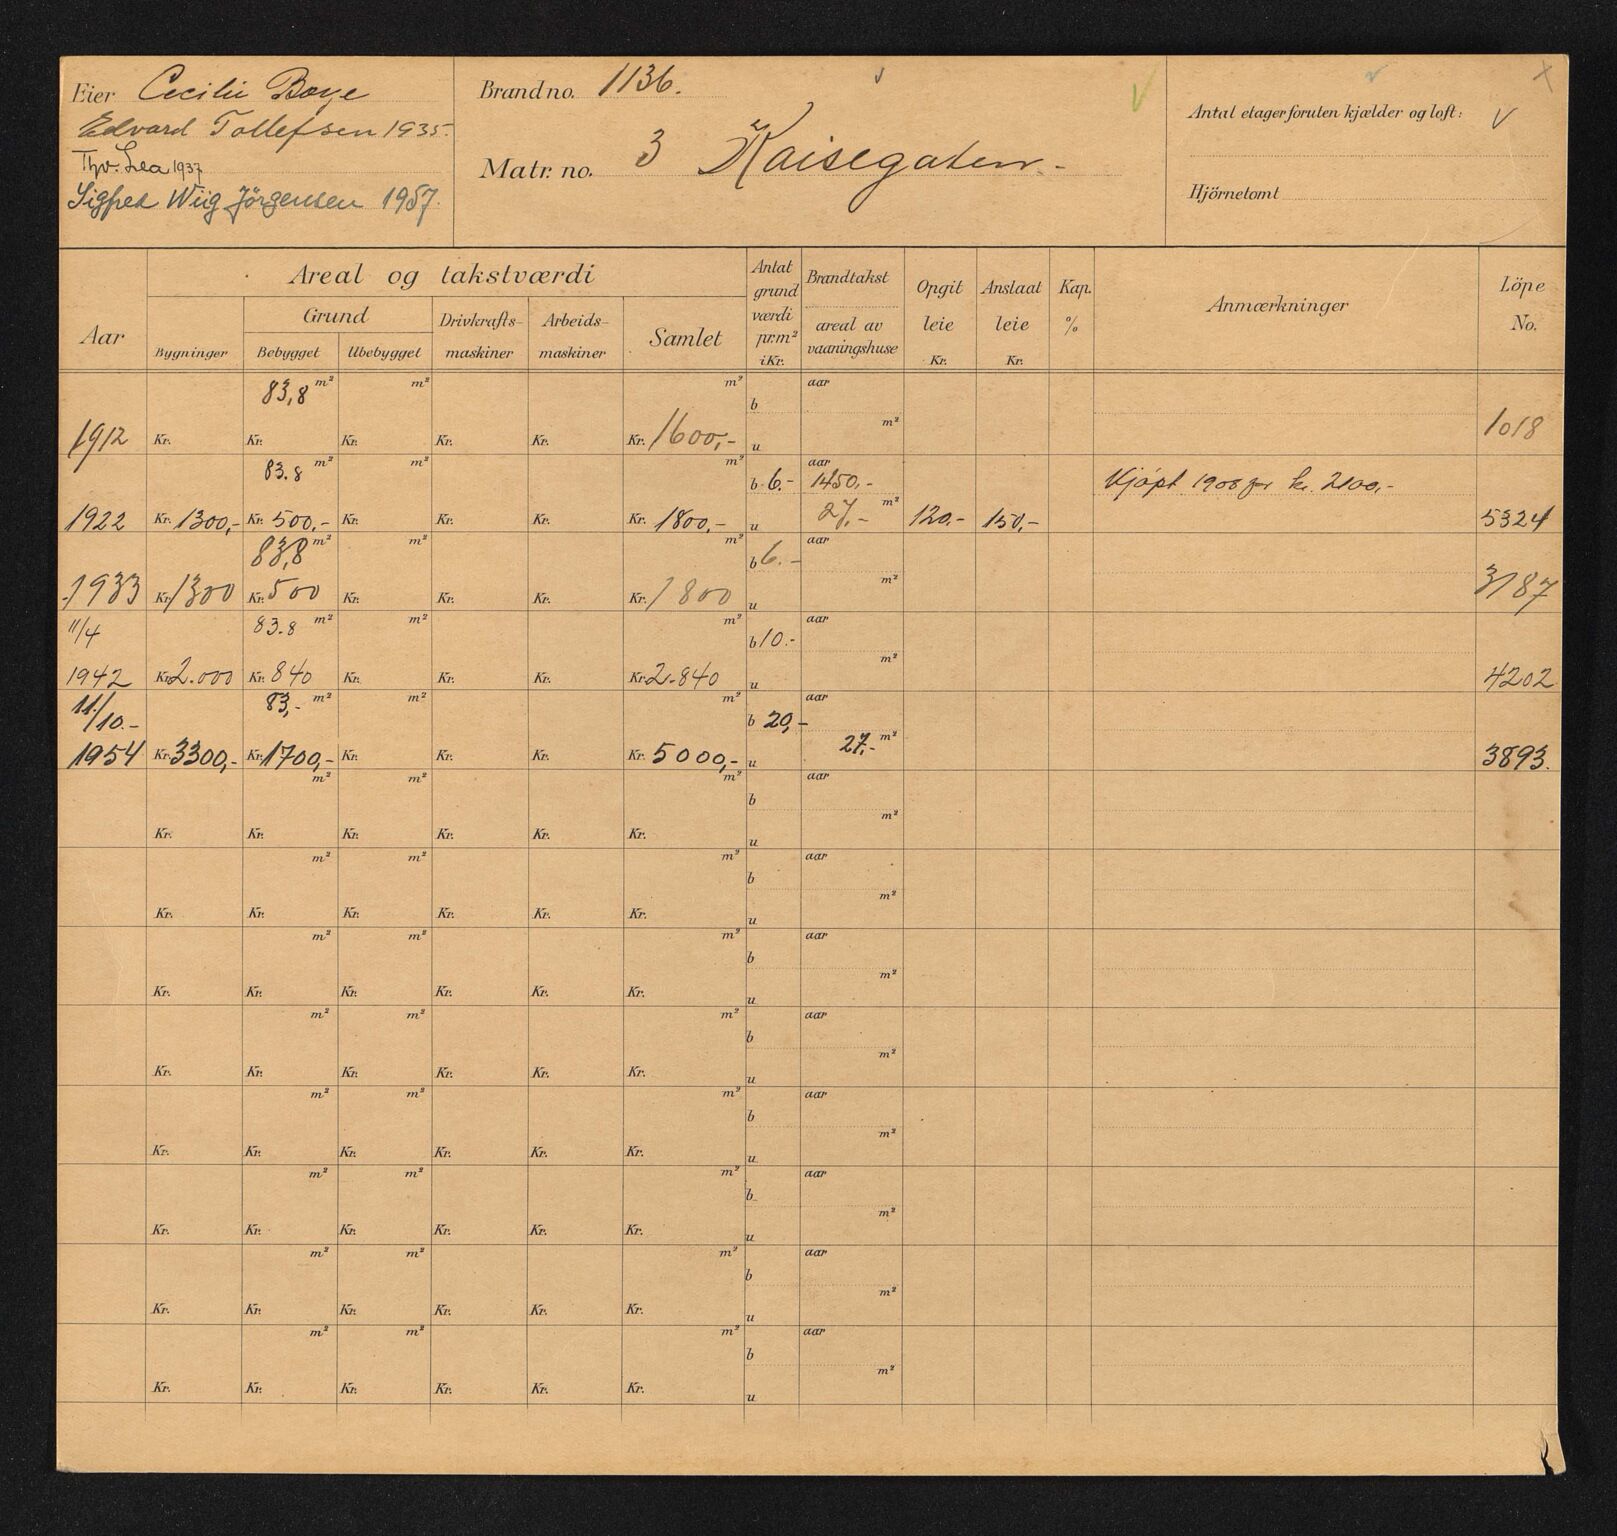 Eier Cecilie Boye
Edvard Tollefsen 1935.
Thv. Lea 1937
Sigfred Wiig Jörgensen 1957.
Brand no. 1136.
Matr. no. 3 Kaisegaten.-
Antal etager foruten kjælder og loft:
Hjörnetomt
Aar
Areal og takstværdi
Bygninger
Grund
Bebygget Ubebygget
Drivkrafts-
maskiner
Arbeids-
maskiner
Samlet
Antat
grund
værdi
pr.m²
i Kr.
Brandtakst
areal av
vaaningshuse
Opgit
leie
Kr.
Anslaat
leie
Kr.
Kap.
%
Anmærkninger
Löpe
No.
83,8 m² m² m² b aar
1912 Kr. Kr. Kr. Kr. Kr. Kr. 1600,- u m² 1018
83.8 m² m² m² b 6.- aar 1450.- Kjöpt 1908 for kr. 2100,-
1922 Kr. 1300,- Kr. 500,- Kr. Kr. Kr. Kr. 1800,- u 27,- m² 120.- 150,- 5324
83,8 m² m² m² b 6.- aar
1933 Kr. 1300 Kr. 500 Kr. Kr. Kr. Kr. 1800 u m² 3187
11/4 83.8 m² m² m² b 10.- aar
1942 Kr. 2.000 Kr. 840 Kr. Kr. Kr. Kr. 2.840 u m² 4202
11/10.- 83,- m² m² m² b 20,- aar
1954 Kr. 3300,- Kr. 1700,- Kr. Kr. Kr. Kr. 5000,- u 27,- m² 3893.
m² m² m² b aar
Kr. Kr. Kr. Kr. Kr. Kr. u m²
m² m² m² b aar
Kr. Kr. Kr. Kr. Kr. Kr. u m²
m² m² m² b aar
Kr. Kr. Kr. Kr. Kr. Kr. u m²
m² m² m² b aar
Kr. Kr. Kr. Kr. Kr. Kr. u m²
m² m² m² b aar
Kr. Kr. Kr. Kr. Kr. Kr. u m²
m² m² m² b aar
Kr. Kr. Kr. Kr. Kr. Kr. u m²
m² m² m² b aar
Kr. Kr. Kr. Kr. Kr. Kr. u m²
m² m² m² b aar
Kr. Kr. Kr. Kr. Kr. Kr. u m²